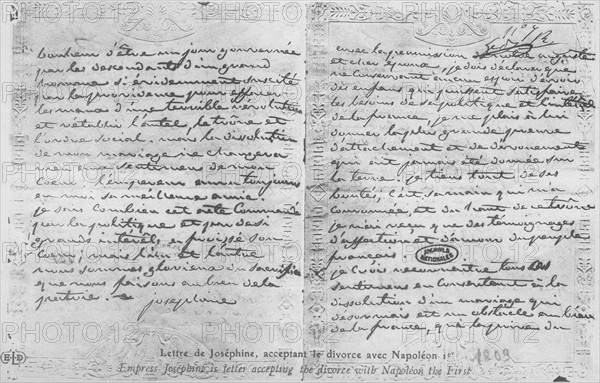 bonheur d'être un jour gouvernée
par les descendants d'un grand
homme si évidemment suscité
par la providence pour effacer
les maux d'une terrible révolution
et rétablir l'autel, le trône et
l'ordre social. mais la dissolution
de mon mariage ne changera
rien aux sentimens de mon
coeur. l'empereur aura toujours
en moi sa meilleure amie.
je sais combien cet acte commandé
par la politique et par de si
grands interêts, a froissé son
coeur; mais l'un et l'autre
nous sommes glorieux du sacrifice
que nous faisons au bien de la
patrie.
josephine
avec la permission de auguste
et cher époux, je dois déclarer que
ne conservant aucun espoir d'avoir
des enfans qui puissent satisfaire
les besoins de sa politique et l'intérêt
de la france, je me plais à lui
donner la plus grande preuve
d'attachement et de dévouement
qui ait jamais été donnée sur
la terre. je tiens tout de ses
bontés, c'est sa main qui m'a
couronnée, et du haut de ce trône
je n'ai reçu que des témoignages
d'affection et d'amour du peuple
français.
ARCHIVES NATIONALES
je crois reconnaitre tous ces
sentimens en consentant à la
dissolution d'un mariage qui
désormais est un obstacle au bien
de la france, qui la prive du
Lettre de Joséphine, acceptant le divorce avec Napoléon 1er 1809
Empress Joséphine is letter accepting the divorce with Napoléon the First
ELD
PHOTO12